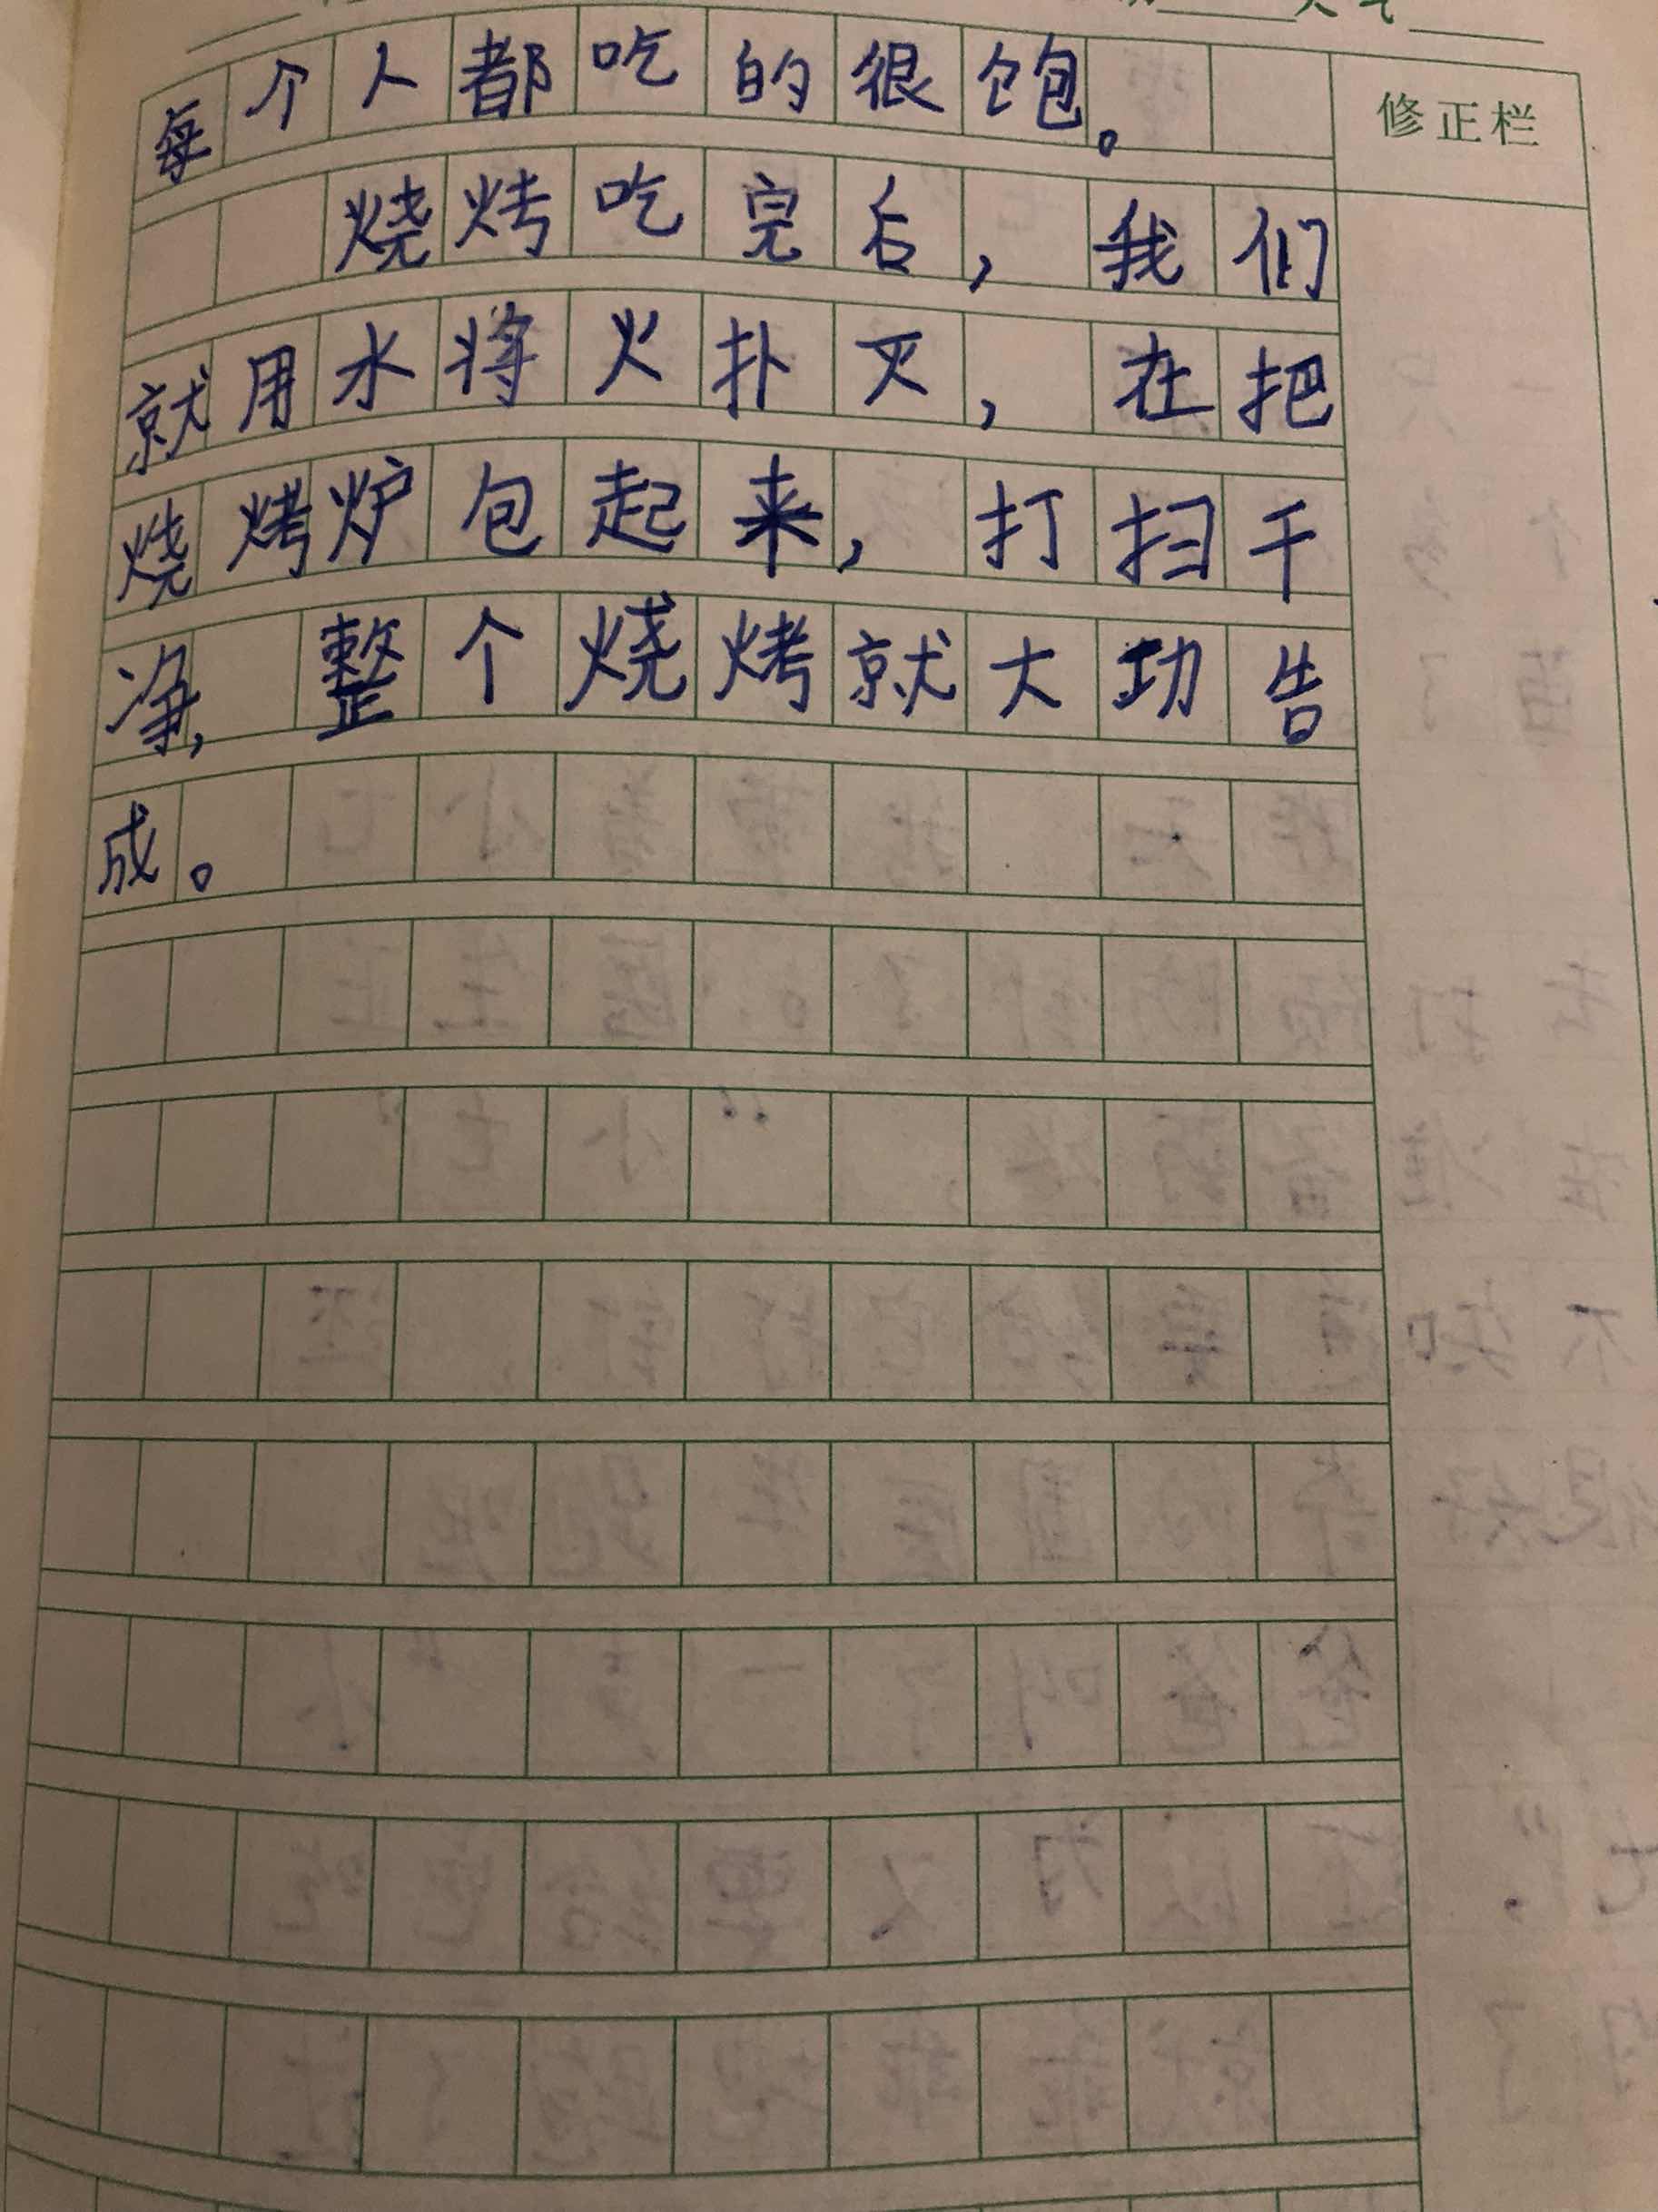 天气
每个人都吃的很饱。
修正栏
烧烤吃完后，我们
就用水将火扑灭，在把
烧烤炉包起来，打扫干
净，整个烧烤就大功告
成。